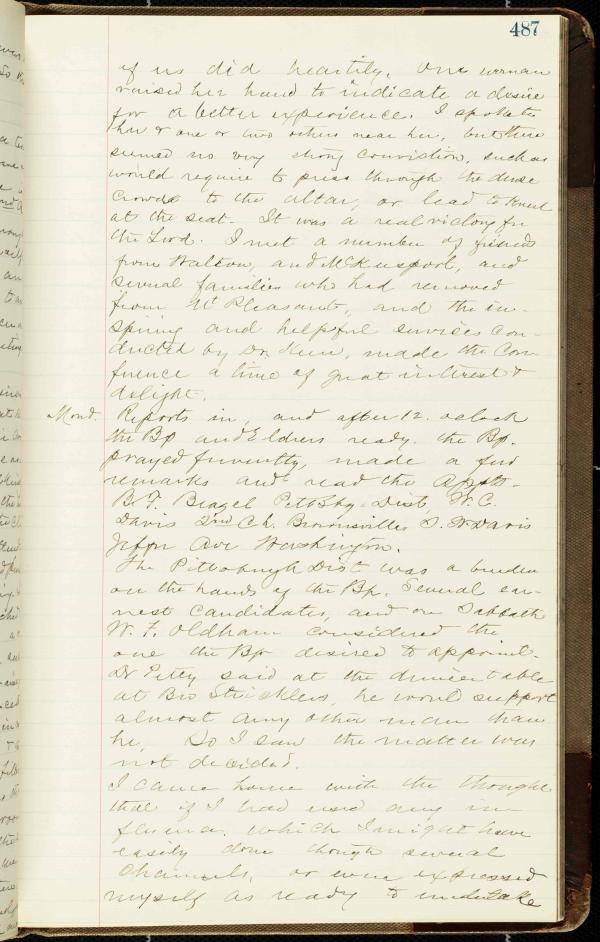 487
of us did heartily. One woman
raised her hand to indicate a desire
for a better experience. I spoke to
her & one or two others near her, but there
seemed no very strong conviction, such as
would require to press through the dense
crowds to the altar, or lead to kneel
at the seat. It was a real victory for
the Lord. I met a number of friends
from Walton, and McKeesport, and
several families who had removed
from Mt Pleasant, and the in-
spiring and helpful services con-
ducted by Dr. Keen, made the Con
ference a time of great interest &
delight.
Mond. Reports in, and after 12. oclock
the Bp and Elders ready. the Bp.
prayed fervently, made a few
remarks and read the Appts-
B. F. Beazel Pittsbg- Dist, W. C.
Davis 2nd Ch. Brownsville, S. W Davis
Jeffn Ave Washington.
The Pittsburgh Dist was a burden
on the hands of the Bp. Several ear-
nest candidates, and on Sabbath
W. F. Oldham considered the
one the Bp desired to appoint.
Dr Petty said at the dinner table
at Bro Stricklers, he would support
almost any other man than
he, So I saw the matter was
not decided.
I came home with the thought
that if I had used any in-
fluence, which I might have
easily done though several
channels, or even expressed
myself as ready to undertake